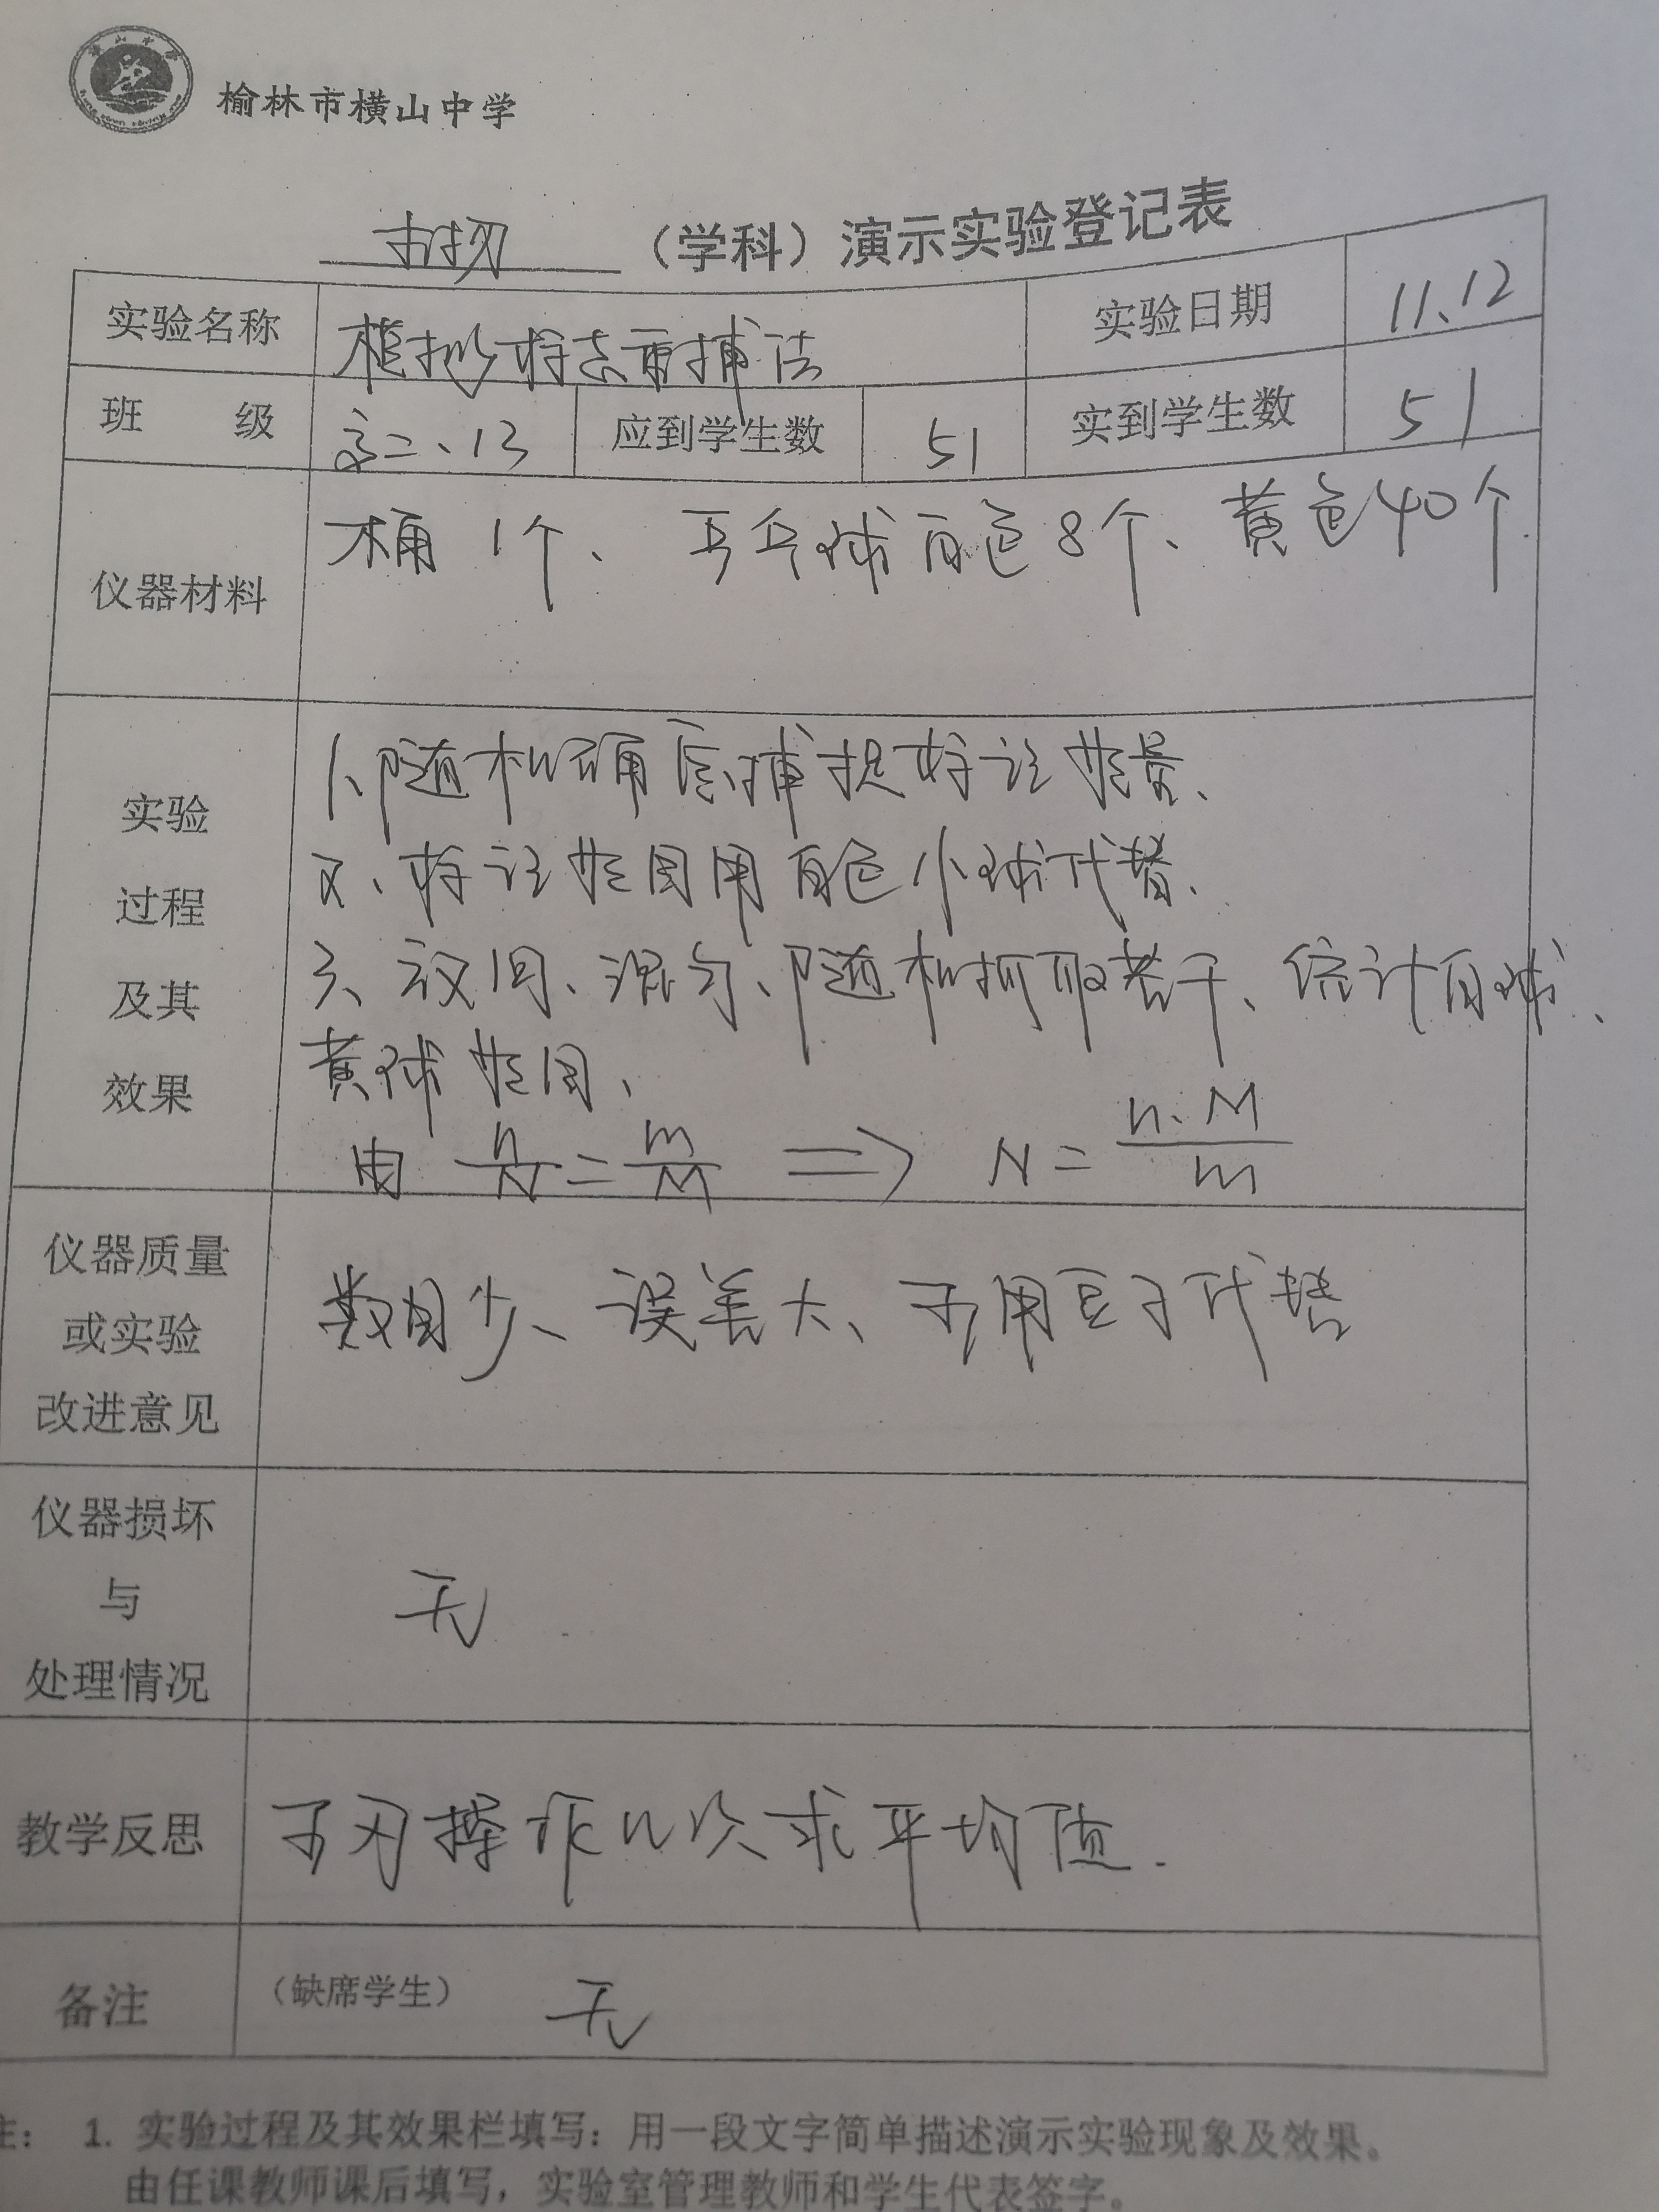 榆林市横山中学
生物 （学科）演示实验登记表
实验名称 模拟标志重捕法 实验日期 11.12
班 级 高二、13 应到学生数 51 实到学生数 51
仪器材料 桶1个、乒乓球白色8个、黄色40个.
实验过程及其效果
1、随机确定捕捉标记数量、
2、标记数目用白色小球代替、
3、放回、混匀、随机抓取若干、统计白球、
黄球数目、
由 n/N = m/M ⇒ N = n.M/m
仪器质量或实验改进意见
数目少、误差大、可用豆子代替
仪器损坏与处理情况
无
教学反思 可多操作几次求平均值.
备注 （缺席学生） 无
注： 1. 实验过程及其效果栏填写：用一段文字简单描述演示实验现象及效果。
由任课教师课后填写，实验室管理教师和学生代表签字。